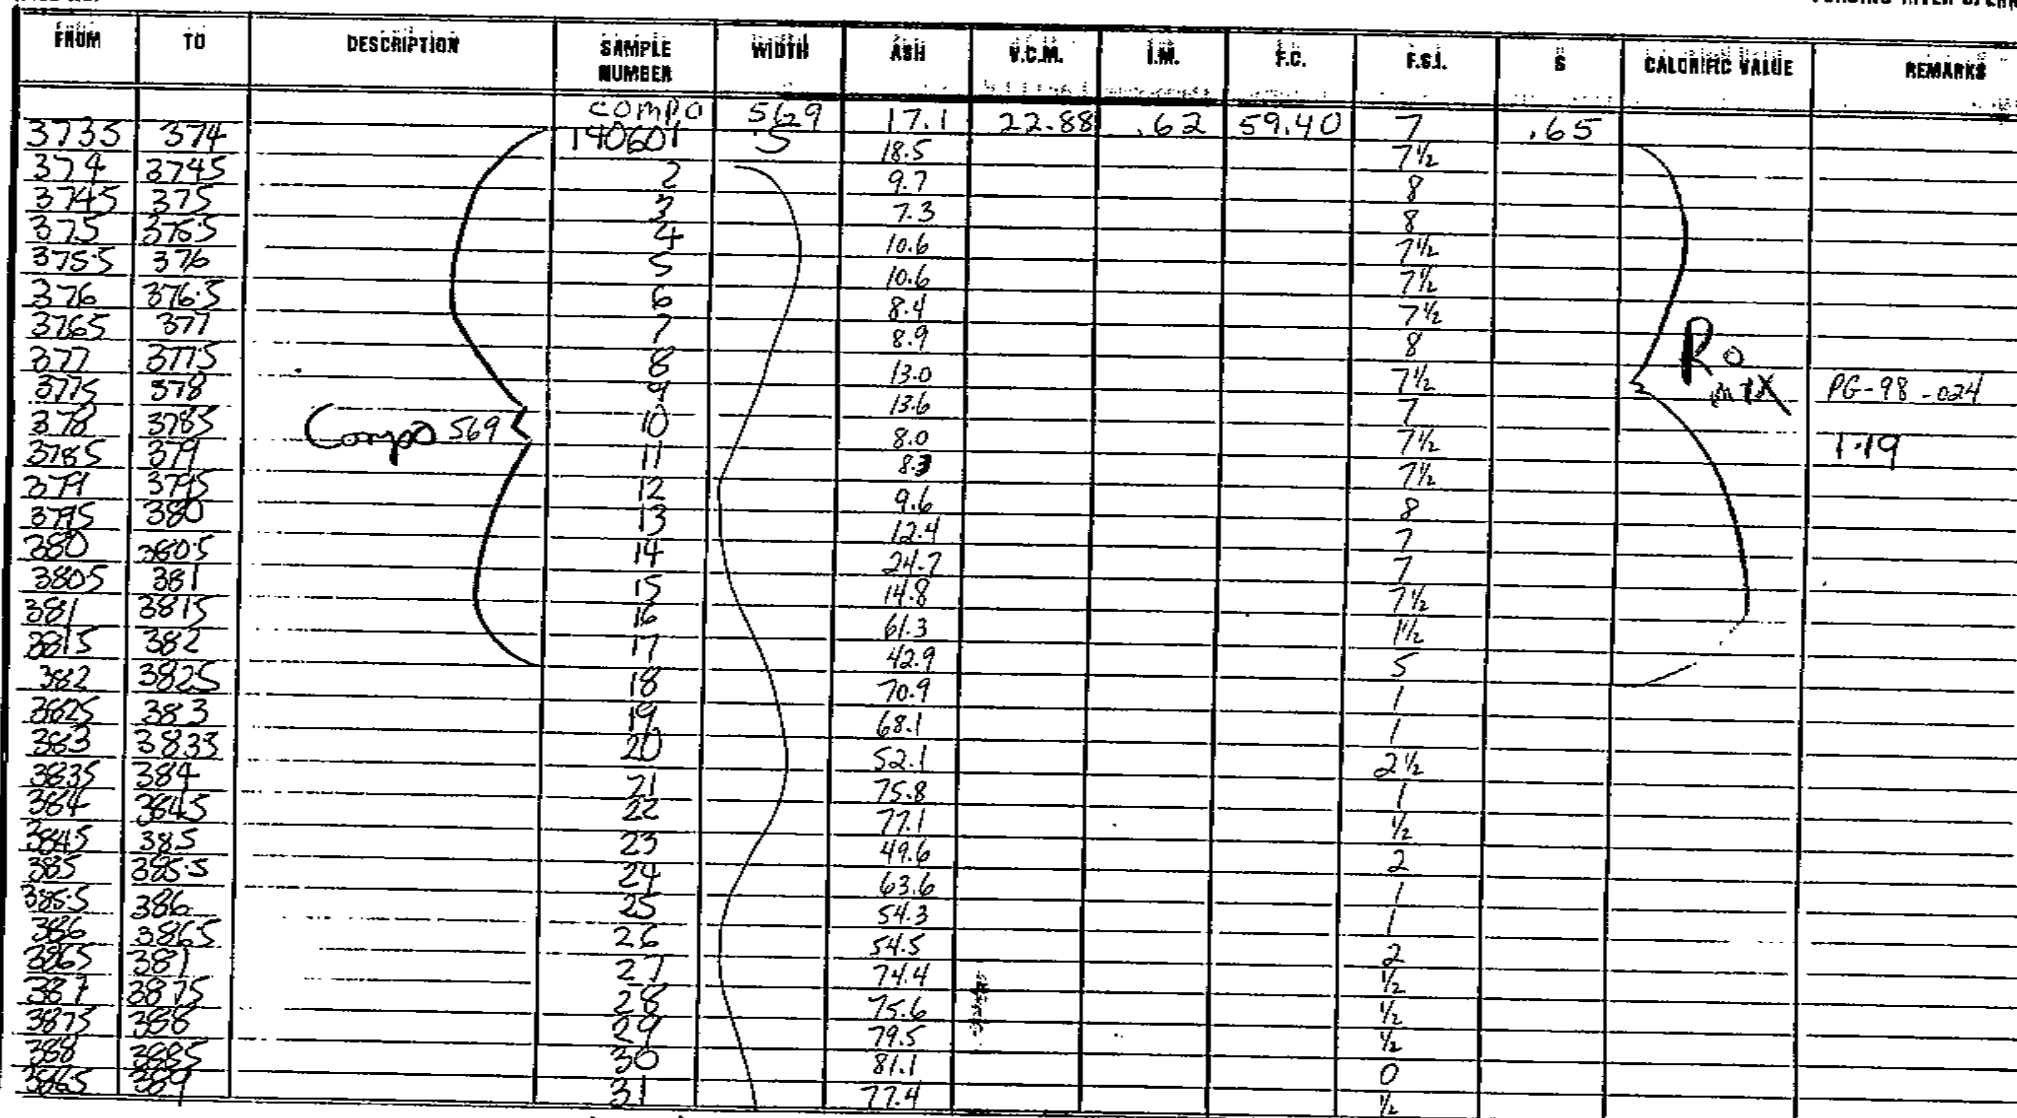 FROM TO DESCRIPTION SAMPLE NUMBER WIDTH ASH V.C.M. I.M. F.C. F.S.I. S CALORIFIC VALUE REMARKS
compo 5629 17.1 22.88 .62 59.40 7 .65
3735 374 140601 .5 18.5 7½
374 3745 2 9.7 8
3745 375 3 7.3 8
375 3755 4 10.6 7½
375.5 376 5 10.6 7½
376 376.5 6 8.4 7½
3765 377 7 8.9 8
377 3775 8 13.0 7½
3775 378 9 13.6 7
378 3785 10 8.0 7½
3785 379 11 8.3 7½
379 3795 12 9.6 8
3795 380 13 12.4 7
380 380.5 14 24.7 7
3805 381 15 14.8 7½
381 3815 16 61.3 1½
3815 382 17 42.9 5
382 3825 18 70.9 1
3825 383 19 68.1 1
383 3835 20 52.1 2½
3835 384 21 75.8 1
384 384.5 22 77.1 ½
384.5 385 23 49.6 2
385 385.5 24 63.6 1
385.5 386 25 54.3 1
386 3865 26 54.5 2
3865 387 27 74.4 ½
387 3875 28 75.6 ½
3875 388 29 79.5 ½
388 3885 30 81.1 0
3885 389 31 77.4 ½
Compo 569
Ro max
PG-98-024
1.19